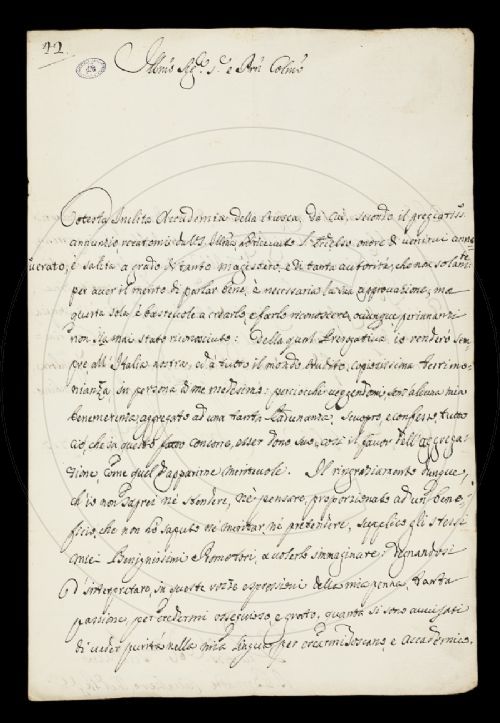 42
Illmo Sigr. e Prñ Colmo
Cotesta Inclita Accademia della Crusca, da cui, secondo il pregiatiss.
annunzio recatomi da V.S. Illma, ho ricevuto l'eccelso onore di venirvi anno-
verato, è salita a grado di tanto magistero, e di tanta autorità, che non solamte
per aver il merito di parlar bene, è necessaria la sua approvazione, ma
questa sola è bastevole a crearlo, e farlo riconoscere, ovunque per innanzi
non sia mai stato riconosciuto: Della qual Prerogativa io renderò sem-
pre all'Italia nostra, ed a tutto il mondo erudito, copiosissima testimo-
nianza in persona di me medesimo: perciocchè veggendomi, senz'alcuna mia
benemerenza, aggregato ad una tanta Radunanza, scuopro, e confesso, tutto
ciò, che in questo fatto concorre, esser dono suo, così il favor dell'aggrega-
zione, come quel d'apparirne meritevole. Il ringraziamento dunque,
ch'io non saprei nè stendere, nè pensare, proporzionato ad un bene-
ficio, che non ho saputo nè meritar, nè pretendere, supplico gli stessi
miei Benignissimi Promotori, a volerlo immaginare: degnandosi
d'interpretare, in queste rozze espressioni della mia penna, tanta
passione, per credermi ossequioso e grato, quanta si sono avvisati
di veder purità nella mia lingua, per crearmi Toscano, e Accademico.